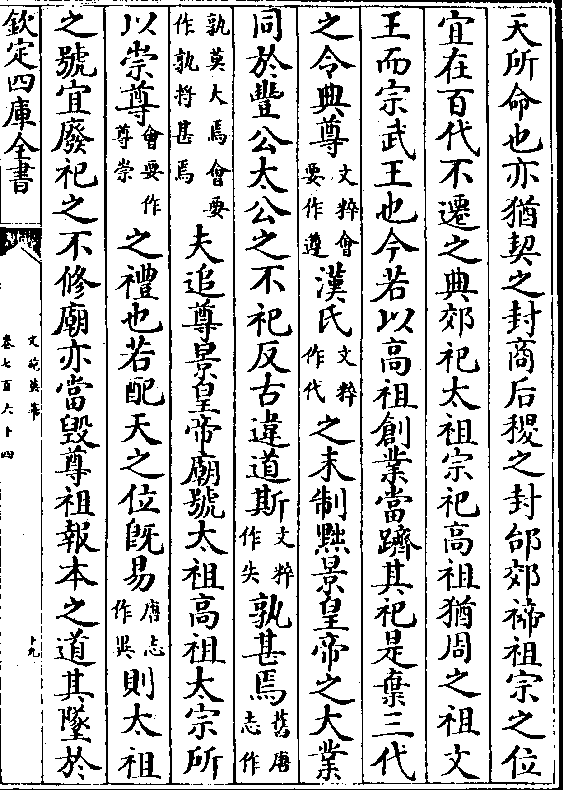 天所命也亦猶契之封商后稷之封邰郊禘祖宗之位
宜在百代不遷之典郊祀太祖宗祀高祖猶周之祖文
王而宗武王也今若以高祖創業當躋其祀是棄三代
之令典尊文粹會要作遵漢氏文粹作代之末制黜景皇帝之大業
同於豐公太公之不祀反古違道斯文粹作失孰甚焉舊唐志作
孰莫大焉會要作孰將甚焉夫追尊景皇帝廟號太祖高祖太宗所
以崇尊會要作尊崇之禮也若配天之位旣易唐志作異則太祖
之號宜廢祀之不修廟亦當毀尊祖報本之道其墜於
欽定四庫全書
文苑英華
卷七百六十四
十九